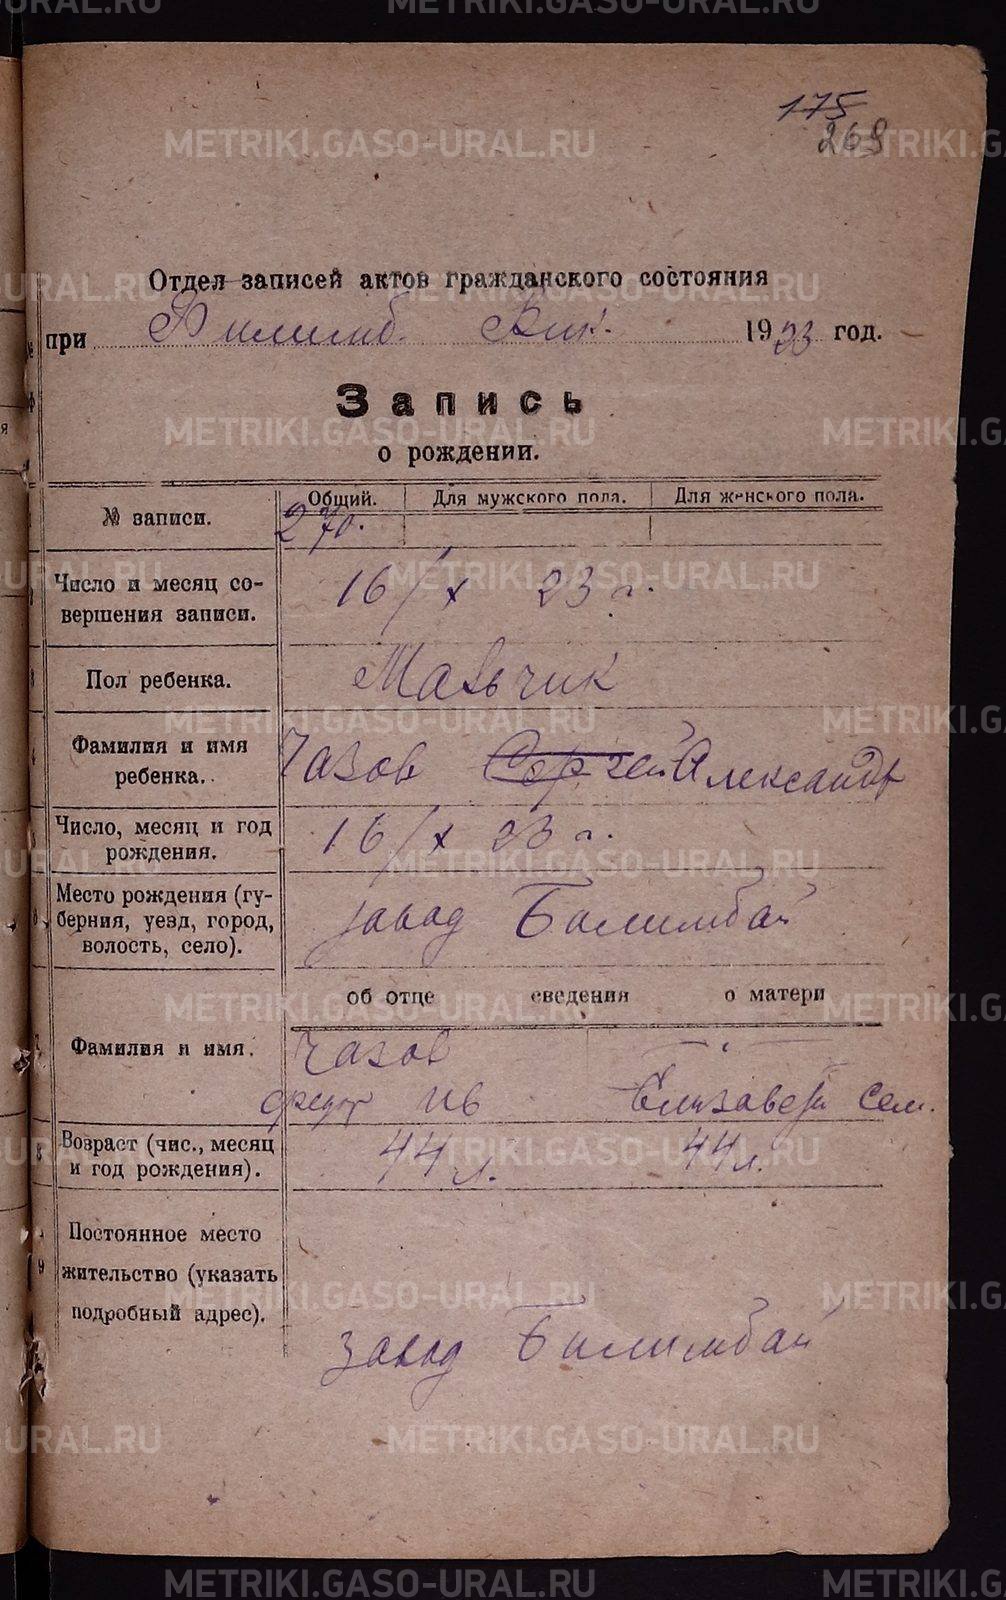 175
269
Отдел записей актов гражданского состояния
при Билимб. Вик. 1923 год.
Запись
о рождении.
№ записи.
Общий. Для мужского пола. Для женского пола.
270.
Число и месяц со-
вершения записи.
16/х 23 г.
Пол ребенка.
Мальчик
Фамилия и имя
ребенка.
Чазов Сергей Александр
Число, месяц и год
рождения.
16/х 23 г.
Место рождения (гу-
берния, уезд, город,
волость, село).
завод Билимбай
об отце сведения о матери
Фамилия и имя.
Чазов - " -
федор Ив Елизавета Сем.
8
Возраст (чис., месяц
и год рождения).
44 л. 44 л.
9
Постоянное место
жительство (указать
подробный адрес).
завод Билимбай
METRIKI.GASO-URAL.RU